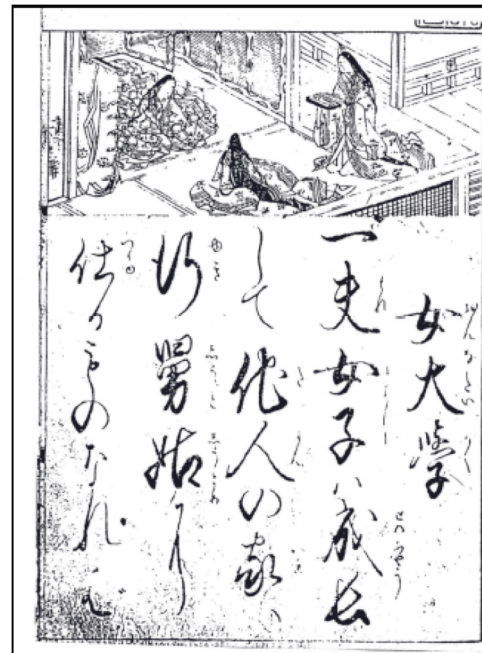 女大學
一夫女子ハ成長
して他人の家へ
行舅姑に
仕るものなれば